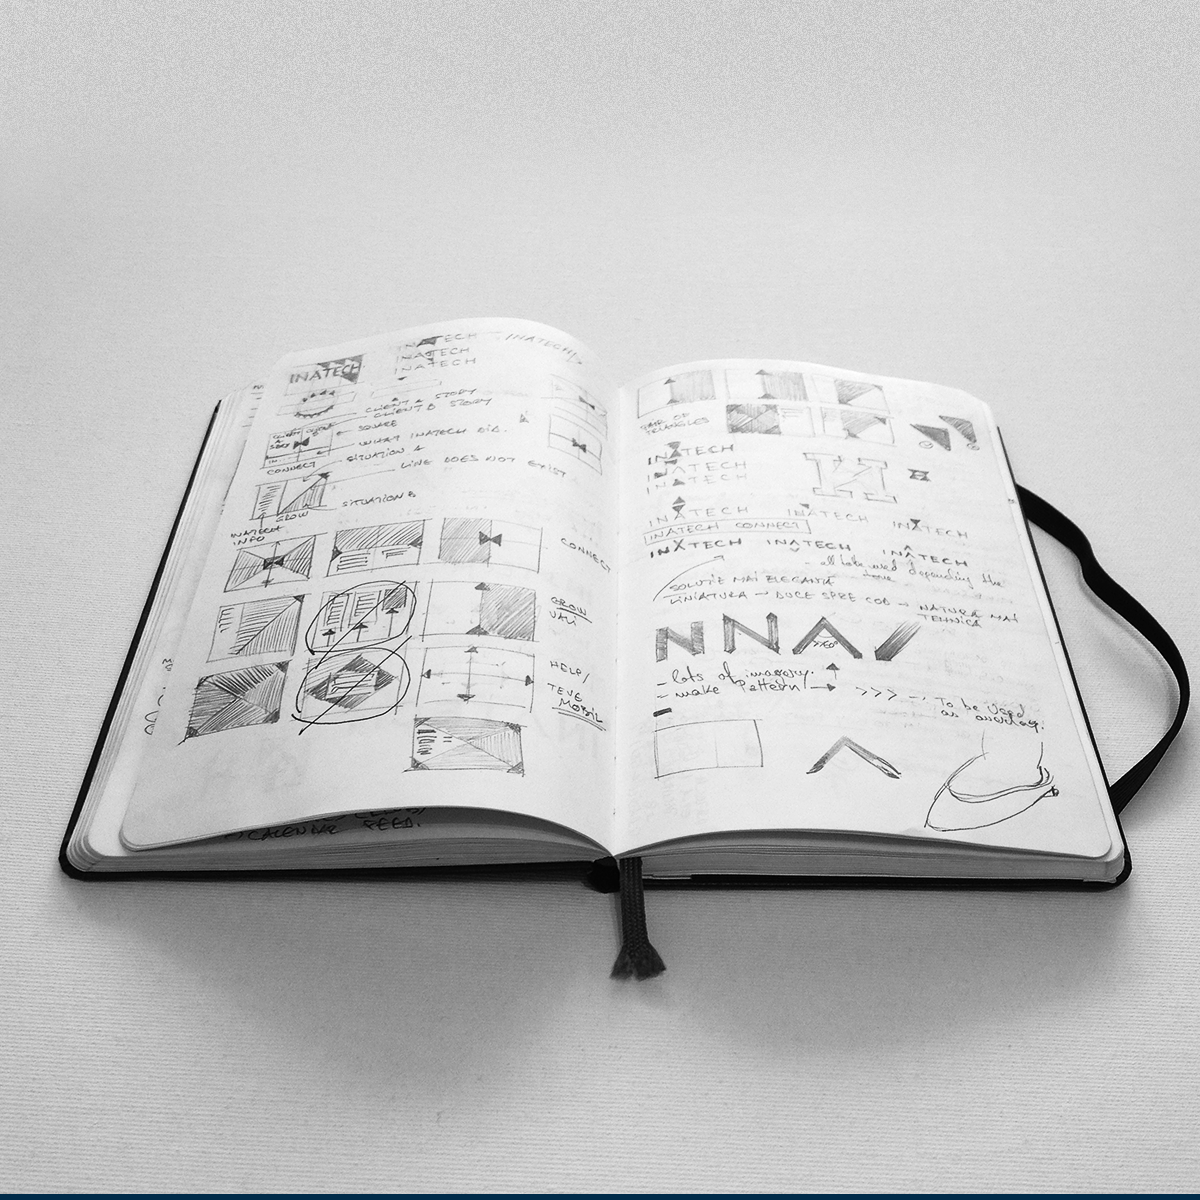 INATECH
INATECH
INATECH
INATECH
INATECH
CLIENT A STORY
CLIENT B STORY
SQUARE
WHAT INATECH DID.
CONNECT
SITUATION A
LINE DOES NOT EXIST
SITUATION B
GROW
INATECH
INFO
CONNECT
GROW
VALI
HELP/
TEVE
MOBIL
CALENDAR FEED.
TRIANGLES
INATECH
INATECH
INATECH
INATECH
INATECH
INATECH
INATECH CONNECT
INATECH
INATECH
INATECH
depending the
tone
SOLUTIE MAI ELEGANTA
LINIATURA → DUCE SPRE COD → NATURA MAI
TEHNICA
N NNA
- lots of imagery.
- make Pattern/ → >>>
To be used
as overlay.